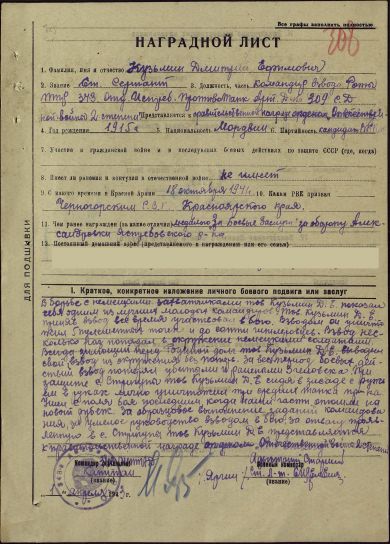 Все графы заполнять полностью
306
НАГРАДНОЙ ЛИСТ
1. Фамилия, имя и отчество Кузьмин Дмитрий Ефимович
2. Звание Ст. Сержант 3. Должность, часть Командир взвода Роты
ПТР 343 Отд Истреб. Противотанк Арт. Д-на 309 С.Д
ной войны 2 степени Представляется к правительственной награде орденом Отечествен
4. Год рождения 1915 г. 5. Национальность Мордвин 6. Партийность кандидат ВКП
7. Участие в гражданской войне и в последующих боевых действиях по защите СССР (где, когда)
8. Имеет ли ранения и контузии в отечественной войне не имеет
9. С какого времени в Красной Армии 18 октября 1941 г. 10. Каким РВК призван
Черногорским Р.В.К. Красноярского края.
11. Чем ранее награжден (за какие отличия) медалью За Боевые Заслуги за оборону Алек
сандровки
12. Постоянный домашний адрес (представляемого к награждению или его семьи)
ДЛЯ ПОДШИВКИ
I. Краткое, конкретное изложение личного боевого подвига или заслуг
В борьбе с немецкими захватчиками тов Кузьмин Д.Е. показал
себя одним из лучших молодых командиров. Тов Кузьмин Д.Е.
приняв взвод все время участвовал в бою. Взводом он уничто
жил 3 пулеметных точки и до сотни гитлеровцев. Взвод нес
колько раз попадал в окружение немецкими солдатами
всегда знающий перед Родиной долг тов Кузьмин Д.Е. выводил
свой взвод из окружения без потерь. За последние боевые дейст
вия взвод потерял убитыми и ранеными 3 человека. При
защите с. Стригуны тов Кузьмин Д.Е. сидя в засаде с ружь
ем в руках лично уничтожил три средних танка прот
новый рубеж. За образцовое выполнение заданий командова
ния, за умелое руководство взводом в бою за отвагу прояв
ленную в с. Стригуны тов Кузьмин Д.Е. представляется
к правительственной награде орденом Отечественной войны 2 степени
Командир
Капитан
(звание)
апреля 1943 г.
Адъютант Старший
Ст. Л-т
(звание)